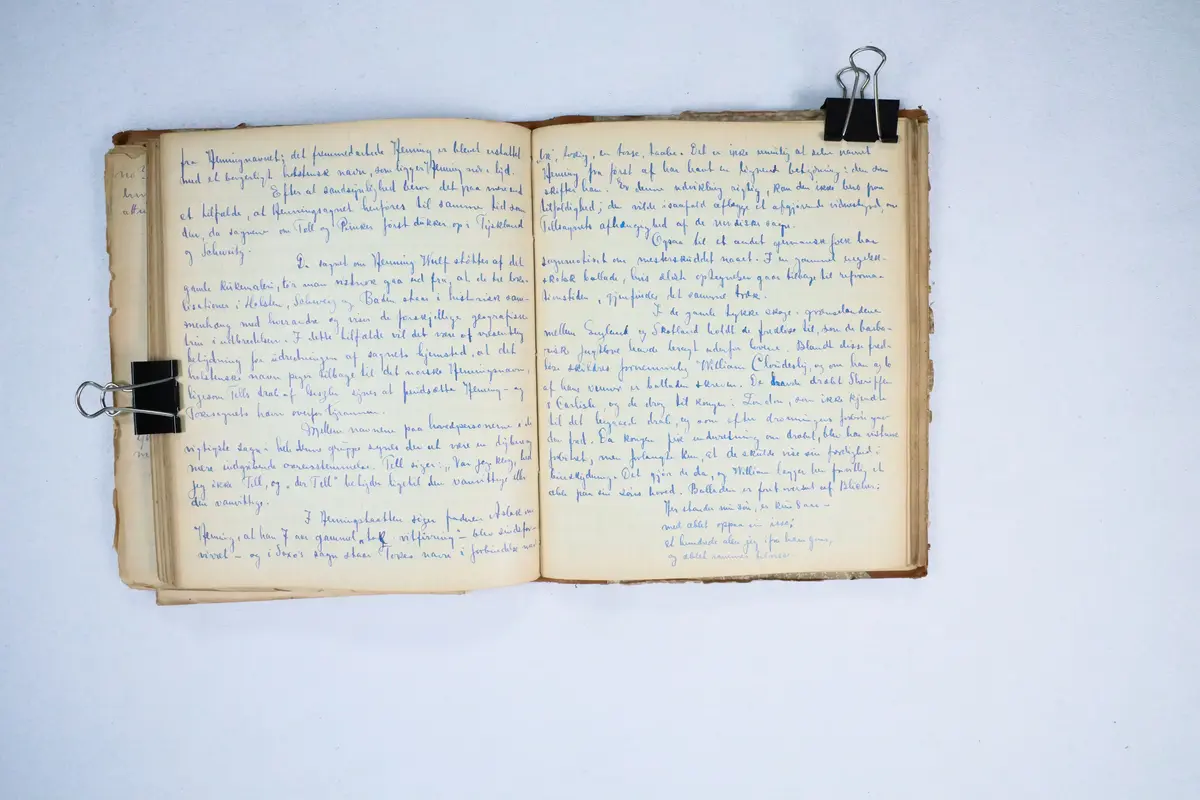 fra Hemingnavnet; det fremmedartede Heming er blevet erstattet
med et borgerligt holstensk navn, som ligger Heming nær i lyd.
Efter al sandsynlighed beror det paa mere end
et tilfælde, at Hemingsagnet henføres til samme tid som
den, da sagnene om Tell og Puncker først dukker op i Tyskland
og Schweitz.
Er sagnet om Henning Wulf støttes af det
gamle kirkemaleri, tør man vistnok gaa ud fra, at de tre loka-
lisationer i Holsten, Schweiz og Baden staar i historisk sam-
menhæng med hverandre og viser de forskjellige geografiske
trin i udbredelsen. I dette tilfælde vil det være af væsentlig
betydning for udredningen af sagnets hjemsted, at det
holstenske navn peger tilbage til det norske Hemingsnavn,
ligesom Tells drab af Gessler synes at forudsætte Heming- og
Tokesagnets hævn overfor tyrannen.
Mellem navnene paa hovedpersonerne i de
vigtigste sagn i hele denne gruppe synes der at være en dybere
mere indgribende overensstemmelse. Tell siger: "Var jeg klog, hed
jeg ikke Tell", og "der Tell" betyder ligetil den vanvittige eller
den vanvittige.
I Hemingstaatten siger faderen Aslak om
Heming, at han 7 aar gammel "tok vitfirring" - blev sindsfor-
virret - og i Saxo's sagn staar Tokes navn i forbindelse med
tosk, tosig, en tosse, taabe. Det er ikke umulig at selve navnet
Heming fra først af har havt en lignende betydning: den som
skifter ham. Er denne udvikling rigtig, kan den ikke bero paa
tilfældighed; den vilde isaafald aflægge et afgjørende vidnesbyrd om
Tellsagnets afhængighed af de nordiske sagn.
Ogsaa til et andet germansk folk har
sagnmotivet om mesterskuddet naaet. I en gammel engelsk-
skotsk ballade, hvis ældste optegnelser gaar tilbage til reforma-
tionstiden, gjenfindes det samme træk.
I de gamle tykke skoge i grænselandene
mellem England og Skotland holdt de fredløse til, som de barba-
risk jagtlove havde bragt udenfor lovene. Blandt disse fred-
løse skildres fornemmelig William Cloudesly, og om ham og to
af hans venner er balladen skreven. De havde dræbt Sheriffen
i Carlisle, og de drog til kongen i London, som ikke kjendte
til det begaaede drab, og som efter dronningens forbøn gav
dem fred. Da kongen fik underretning om drabet, blev han vistnok
forbitret, men forlangte kun, at de skulde vise sin færdighed i
bueskydning. Det gjør de da, og William lægger her frivillig et
æble paa sin søns hoved. Balladen er fort oversat af Blicher:
Her stander min søn, er kun 8 aar -
med æblet oppaa en isse;
et hundrede alen jeg ifra ham gaar,
og æblet rammer